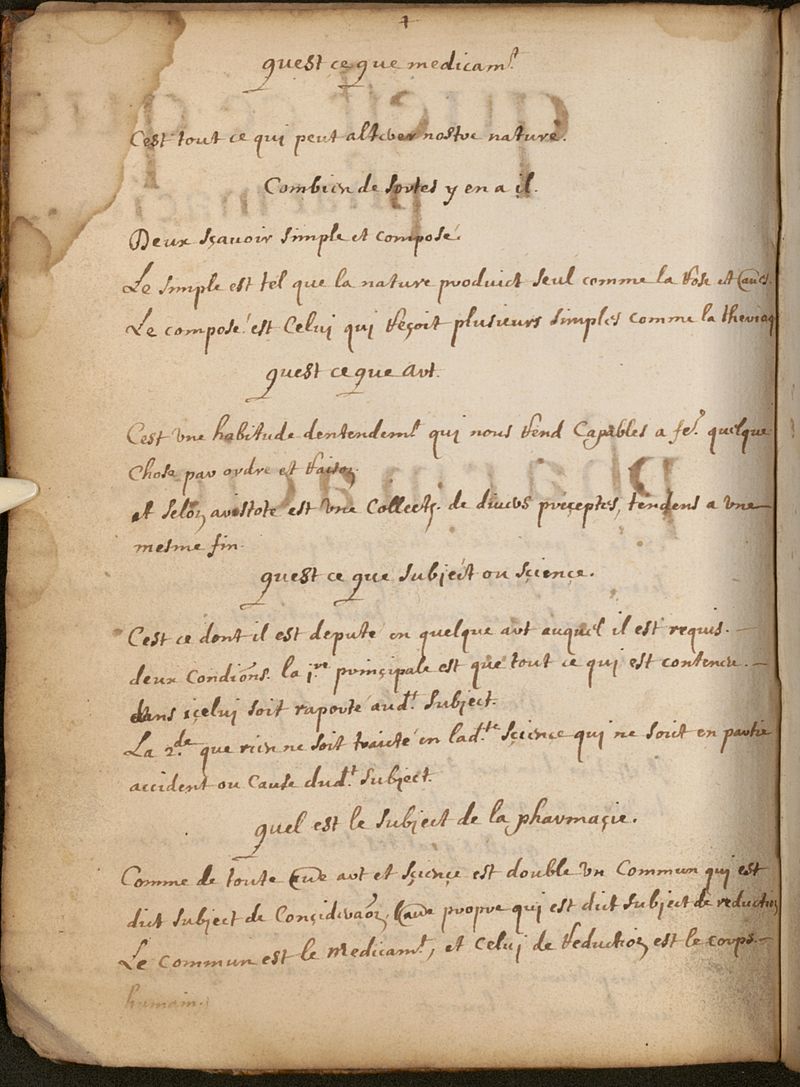 quest ce que medicamt
Cest tout ce qui peut alterer nostre nature.
Combien de sortes y en a il.
Deux sçavoir simple et composé.
Le simple est tel que la nature produict seul comme la rose et
Le composé est Celui qui reçoit plusieurs simples comme la theriaq
quest ce que art.
Cest vne habitude dentendemt qui nous rend Capables a fe.r quelque
Chose par ordre et raison
et selon aristote est vne Collecti. de divers preceptes, tendens a vne
mesme fin
quest ce que subject ou sçience.
Cest ce dont il est deputé en quelque art auquel il est requis.
deux Condions. la 1.re prinçipale est que tout ce qui est contenu.
dans içelui soit raporté aud.t subject.
La 2.de que rien ne soit traicté en lad.te Sçience qui ne soit en partie
accident ou Cause dud.t subject.
quel est le subject de la pharmaçie.
Comme de toute art et sçience est double vn Commun qui est
dict subject de Conçideraon, propre qui est dict subject de reduction
Le Commun est le medicam.t, et Celui de reduction est le corps
humain.